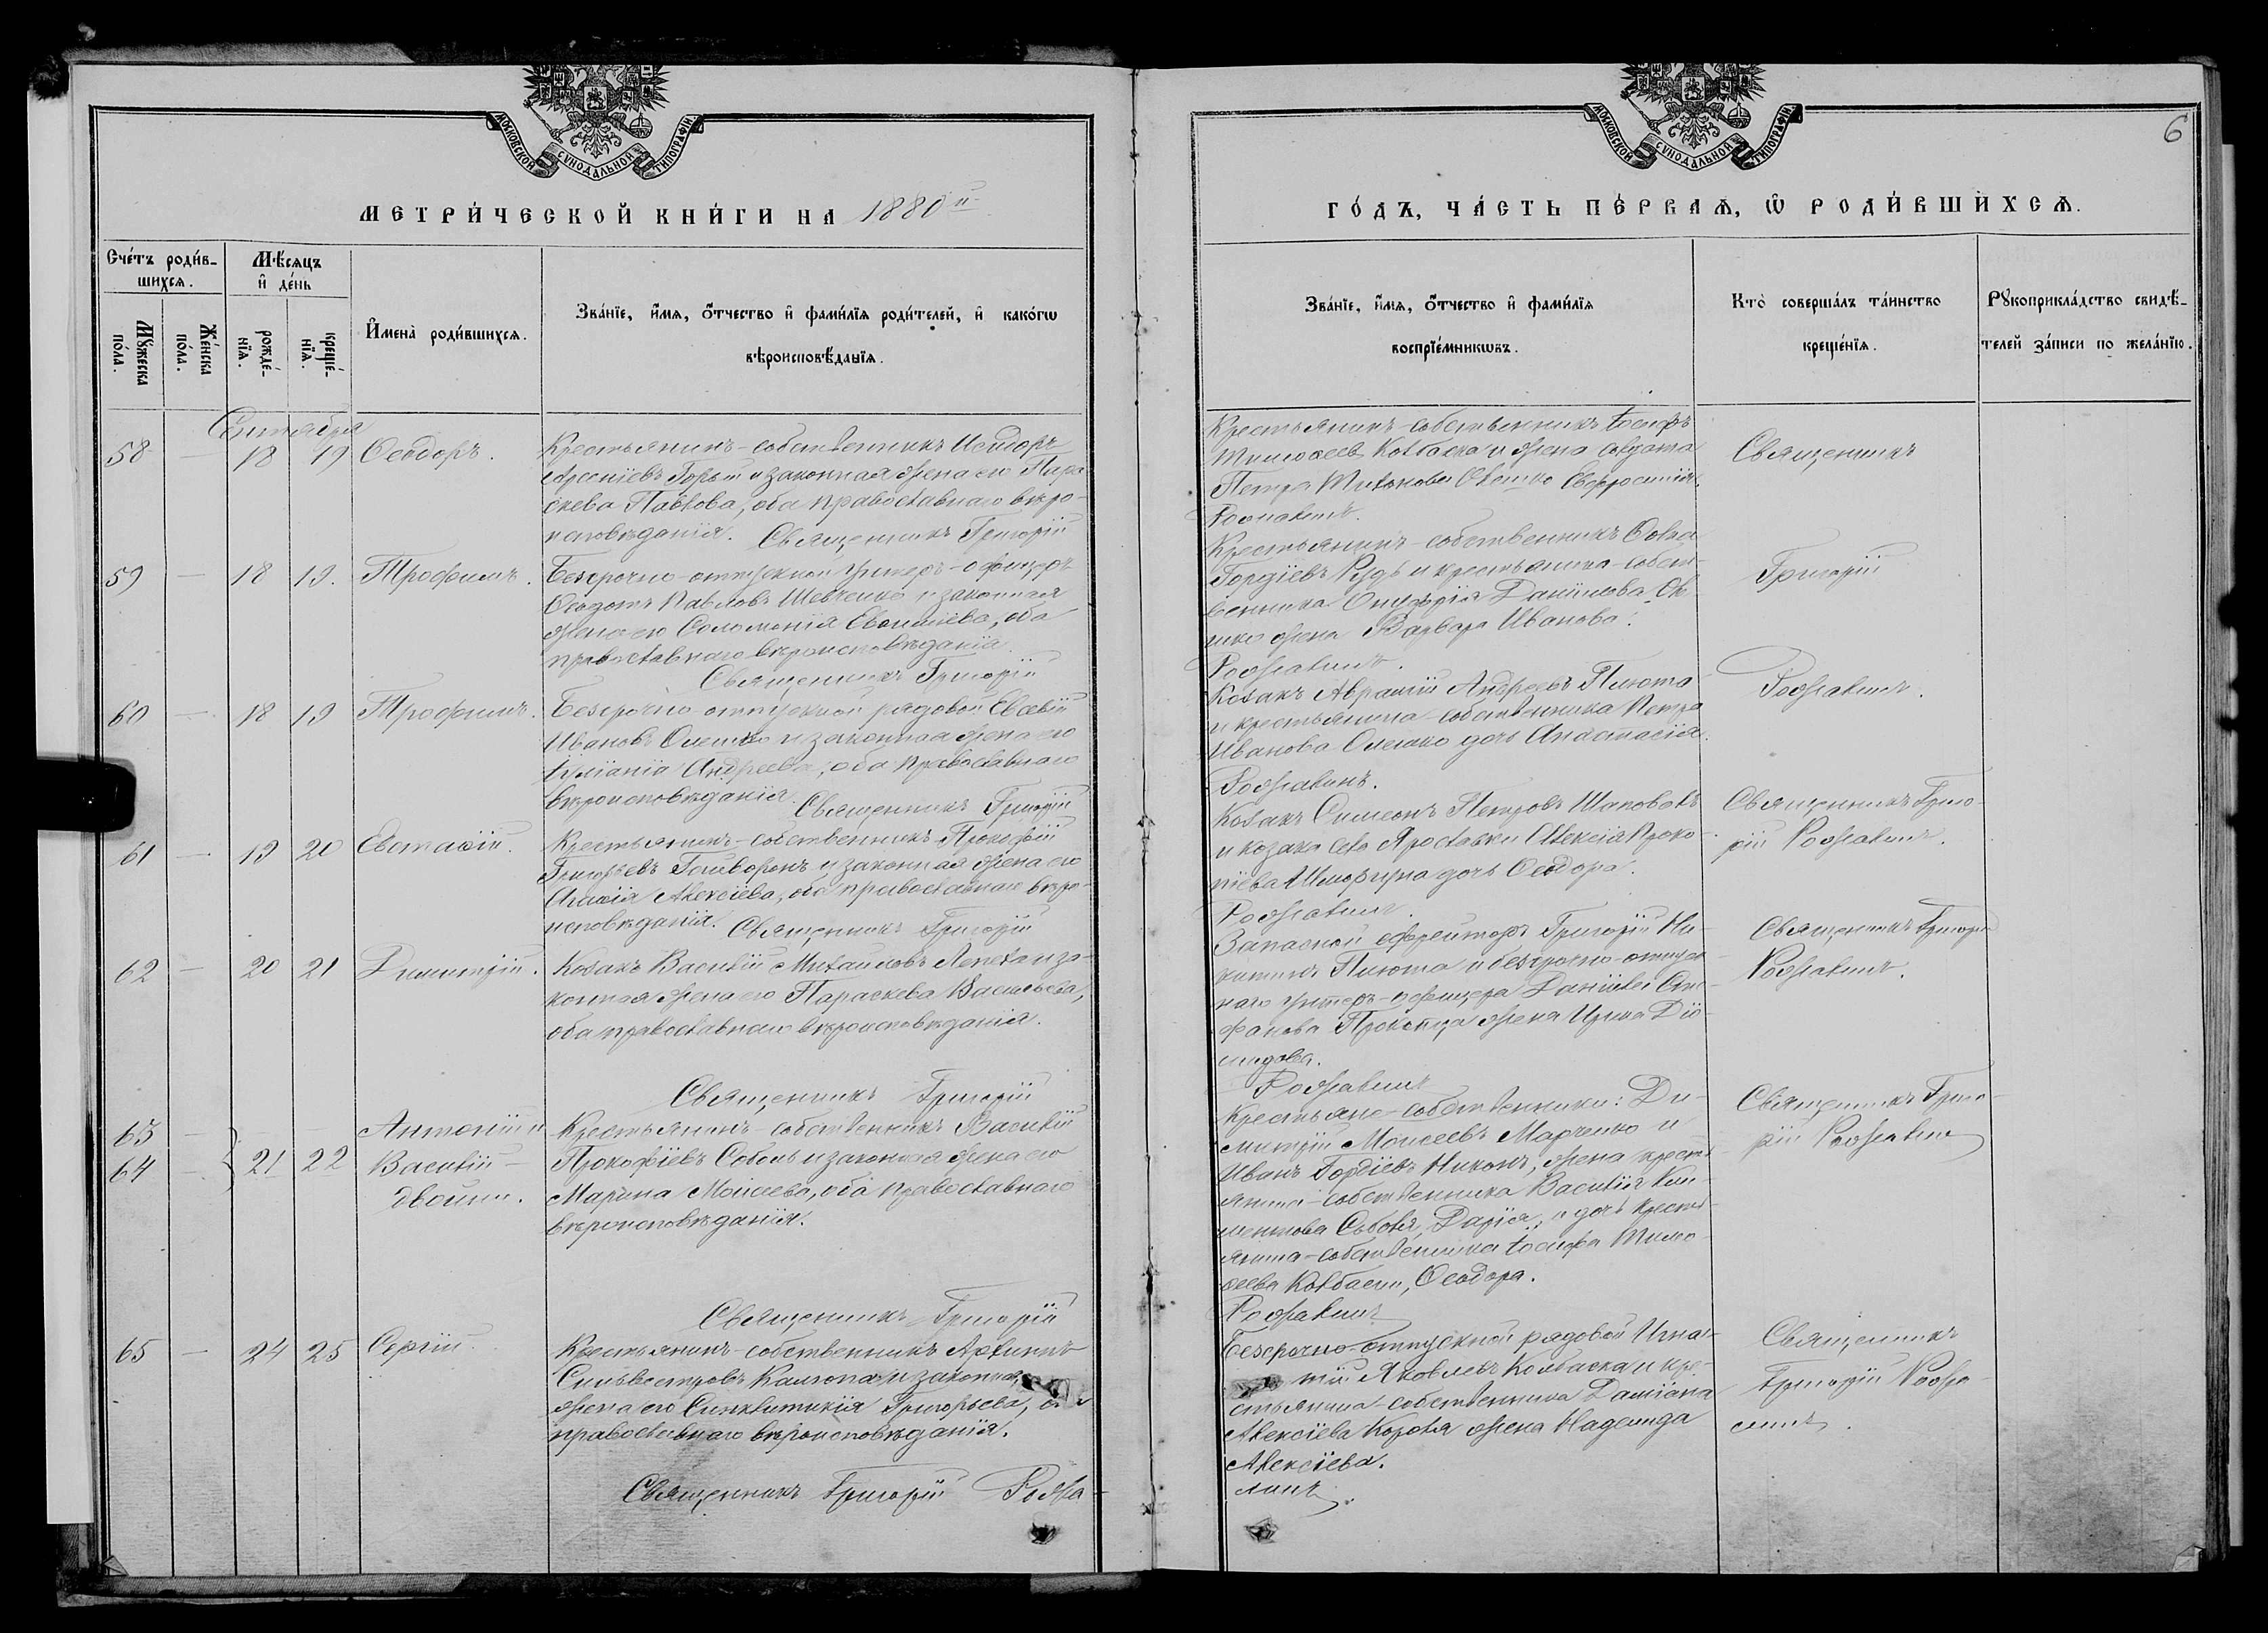 МОСКОВСКОЙ СѴНОДАЛЬНОЙ ТИПОГРАФІИ.
МЕТРИ́ЧЕСКОЙ КНИ́ГИ НА 1880й
Сче́тъ роди́в-
шихсѧ.
Мѣ́сѧцъ
и҆ де́нь
Мꙋ́жеска
по́ла.
Же́нска
по́ла.
рожде́-
нїѧ.
креще́-
нїѧ.
И҆мена̀ роди́вшихсѧ.
Зва́нїе, и҆́мѧ, ѻ҆́тчество и҆ фами́лїѧ роди́телей, и҆ како́гѡ
вѣроисповѣ́данїѧ.
Сентября
58 — 18 19 Ѳеодоръ.
Крестьянинъ-собственникъ Исидоръ
Арсеніевъ и законная жена его Пара
скева Павлова, оба православнаго вѣро-
исповѣданія. Священникъ Григорій
59 — 18 19. Трофимъ.
Безсрочно-отпускной унтеръ-офицеръ
Ѳеодотъ Павловъ Шевченко и законная
жена его Соломонія, оба
православнаго вѣроисповѣданія.
Священникъ Григорій
60 — 18 19 Трофимъ.
Безсрочно-отпускной рядовой Евсевій
Ивановъ Олешко и законная жена его
Іуліанія Андреева, оба православнаго
вѣроисповѣданія. Священникъ Григорій
61 — 19 20 Евстафій.
Крестьянинъ-собственникъ Прокофій
Григорьевъ Гайворонъ и законная жена его
Алексіева, оба православнаго вѣро-
исповѣданія. Священникъ Григорій
62 — 20 21 Димитрій.
Козакъ Василій Михайловъ Лепеха и за-
конная жена его Параскева Васильева,
оба православнаго вѣроисповѣданія.
Священникъ Григорій
63 —
64 — 21 22
Антоній и
Василій –
двойни.
Крестьянинъ-собственникъ Василій
Прокофіевъ Соболь и законная жена его
Марина Моисеева, оба православнаго
вѣроисповѣданія.
Священникъ Григорій
65 — 24 25 Сергій.
Крестьянинъ-собственникъ Архиппъ
Сильвестровъ и законная
жена его Синклитикія Григорьева, оба
православнаго вѣроисповѣданія.
Священникъ Григорій Рожа-
МОСКОВСКОЙ СѴНОДАЛЬНОЙ ТИПОГРАФІИ.
6
ГО́ДЪ, ЧА́СТЬ ПЕ́РВАѦ, Ѡ҆ РОДИ́ВШИХСѦ.
Зва́нїе, и҆́мѧ, ѻ҆́тчество и҆ фами́лїѧ
воспрїе́мникѡвъ.
Кто̀ соверша́лъ та́инство
креще́нїѧ.
Рꙋкоприкла́дство свидѣ́-
телей за́писи по жела́нїю.
Крестьянинъ-собственникъ Іосифъ
Тимоѳеевъ Ковбаса и жена солдата
Петра Олешко Евфросинія.
Рожалинъ.
Священникъ
Крестьянинъ-собственникъ Ѳома
Гордіевъ Рудь и крестьянина-собст-
венника Онуфрія Даніилова
жена Варвара Иванова.
Рожалинъ.
Григорій
Козакъ Авраамій Андреевъ Пилюта
и крестьянина-собственника Петра
Иванова Олешко дочь Анастасія.
Рожалинъ.
Рожалинъ.
Козакъ Симеонъ Петровъ Шаповалъ
и козака села Ярославки Алексія Проко-
піева дочь Ѳеодора.
Рожалинъ.
Священникъ Григо-
рій Рожалинъ.
Запасной ефрейторъ Григорій Ни-
китинъ Пилюта и безсрочно-отпуск-
наго унтеръ-офицера Даніила Сте-
фанова Прокопца жена Ирина Діо-
мидова.
Рожалинъ
Священникъ Григорій
Рожалинъ.
Крестьяне-собственники: Ди-
митрій Моисеевъ Марченко и
Иванъ Гордіевъ Никонъ, жена кресть-
янина-собственника Василія Кли-
ментова Соболя, Дарія, и дочь кресть-
янина-собственника Іосифа Тимо-
ѳеева Ковбасы, Ѳеодора.
Рожалинъ
Священникъ Григо-
рій Рожалинъ
Безсрочно-отпускной рядовой Игна-
тій Яковлевъ Ковбаса и кре-
стьянина-собственника Даміана
Алексіева Короля жена Надежда
Алексіева.
линъ.
Священникъ
Григорій Рожа-
линъ.